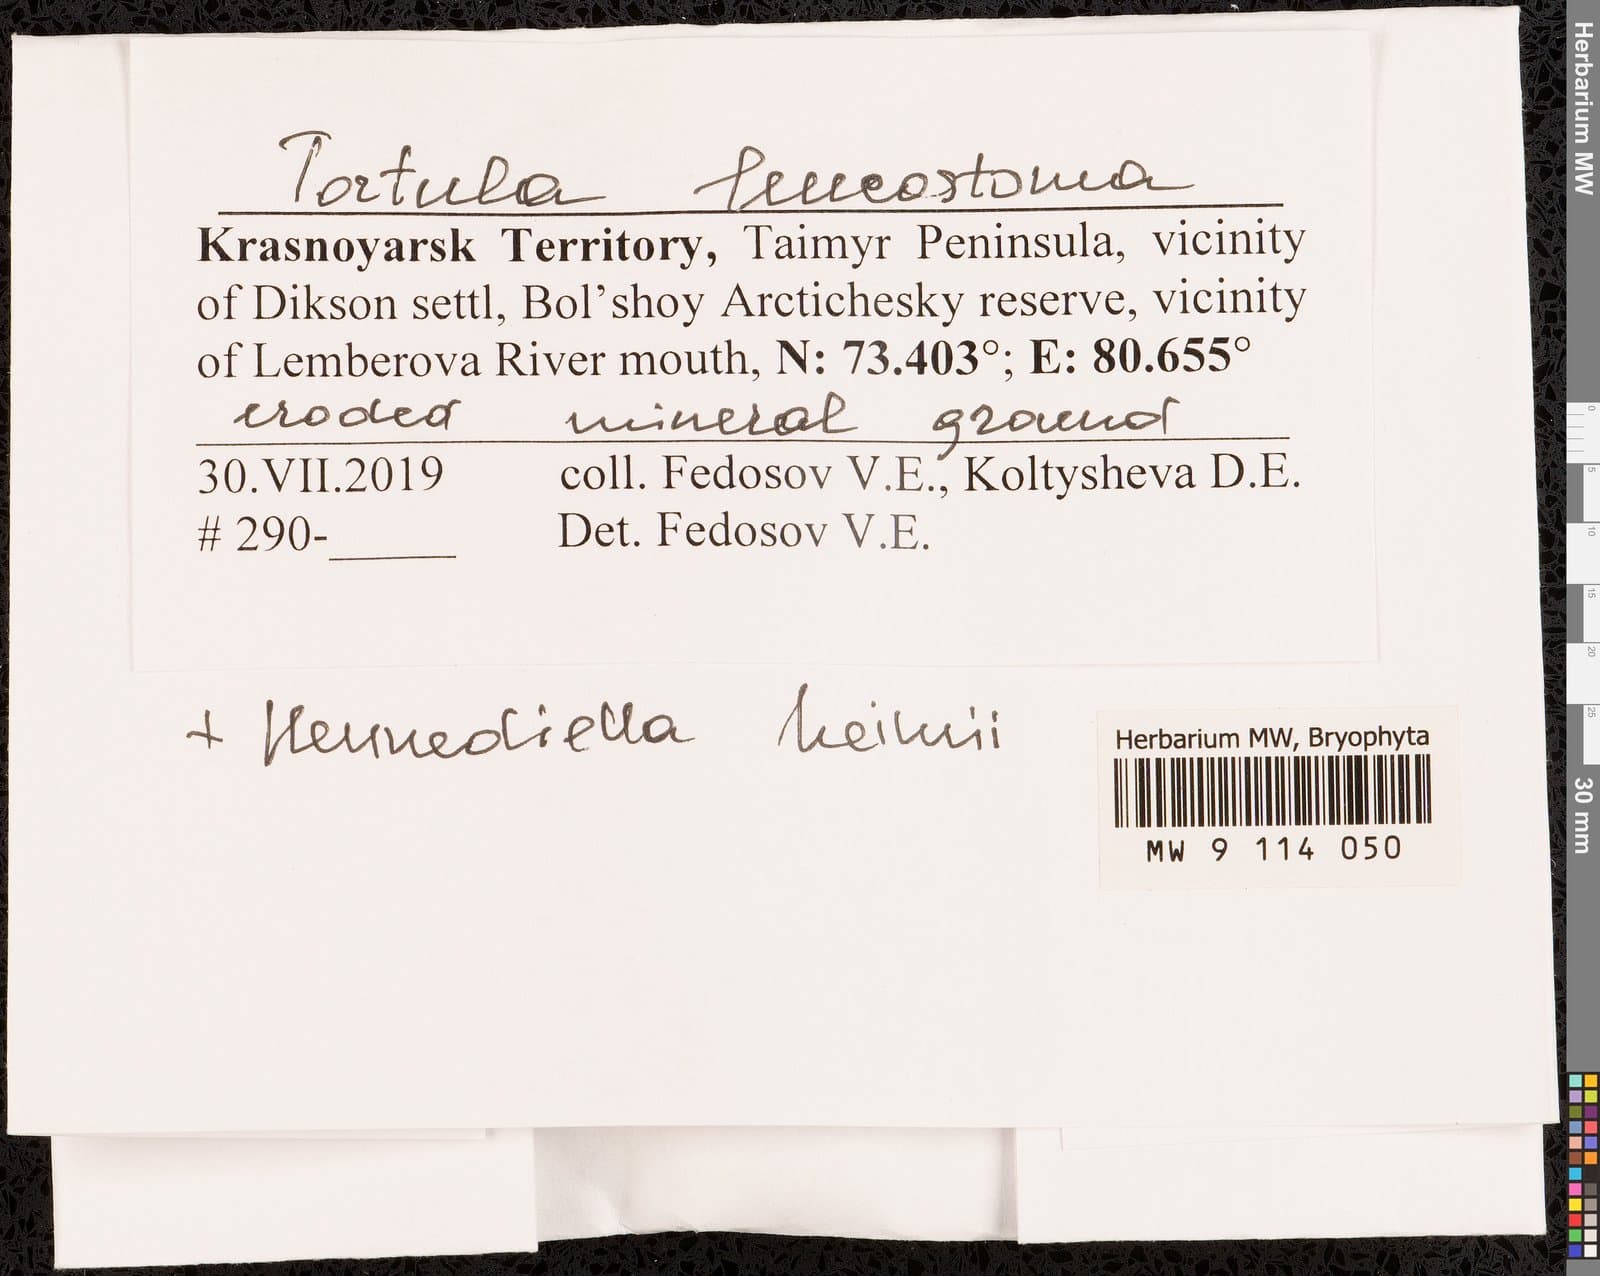 Tortula leucostoma
Krasnoyarsk Territory, Taimyr Peninsula, vicinity
of Dikson settl, Bol'shoy Arctichesky reserve, vicinity
of Lemberova River mouth, N: 73.403°; E: 80.655°
eroded mineral ground
30.VII.2019 coll. Fedosov V.E., Koltysheva D.E.
# 290-______ Det. Fedosov V.E.
+ Hennediella heimii
Herbarium MW, Bryophyta
MW 9 114 050
Herbarium MW
0
5
10
15
20
25
30 mm